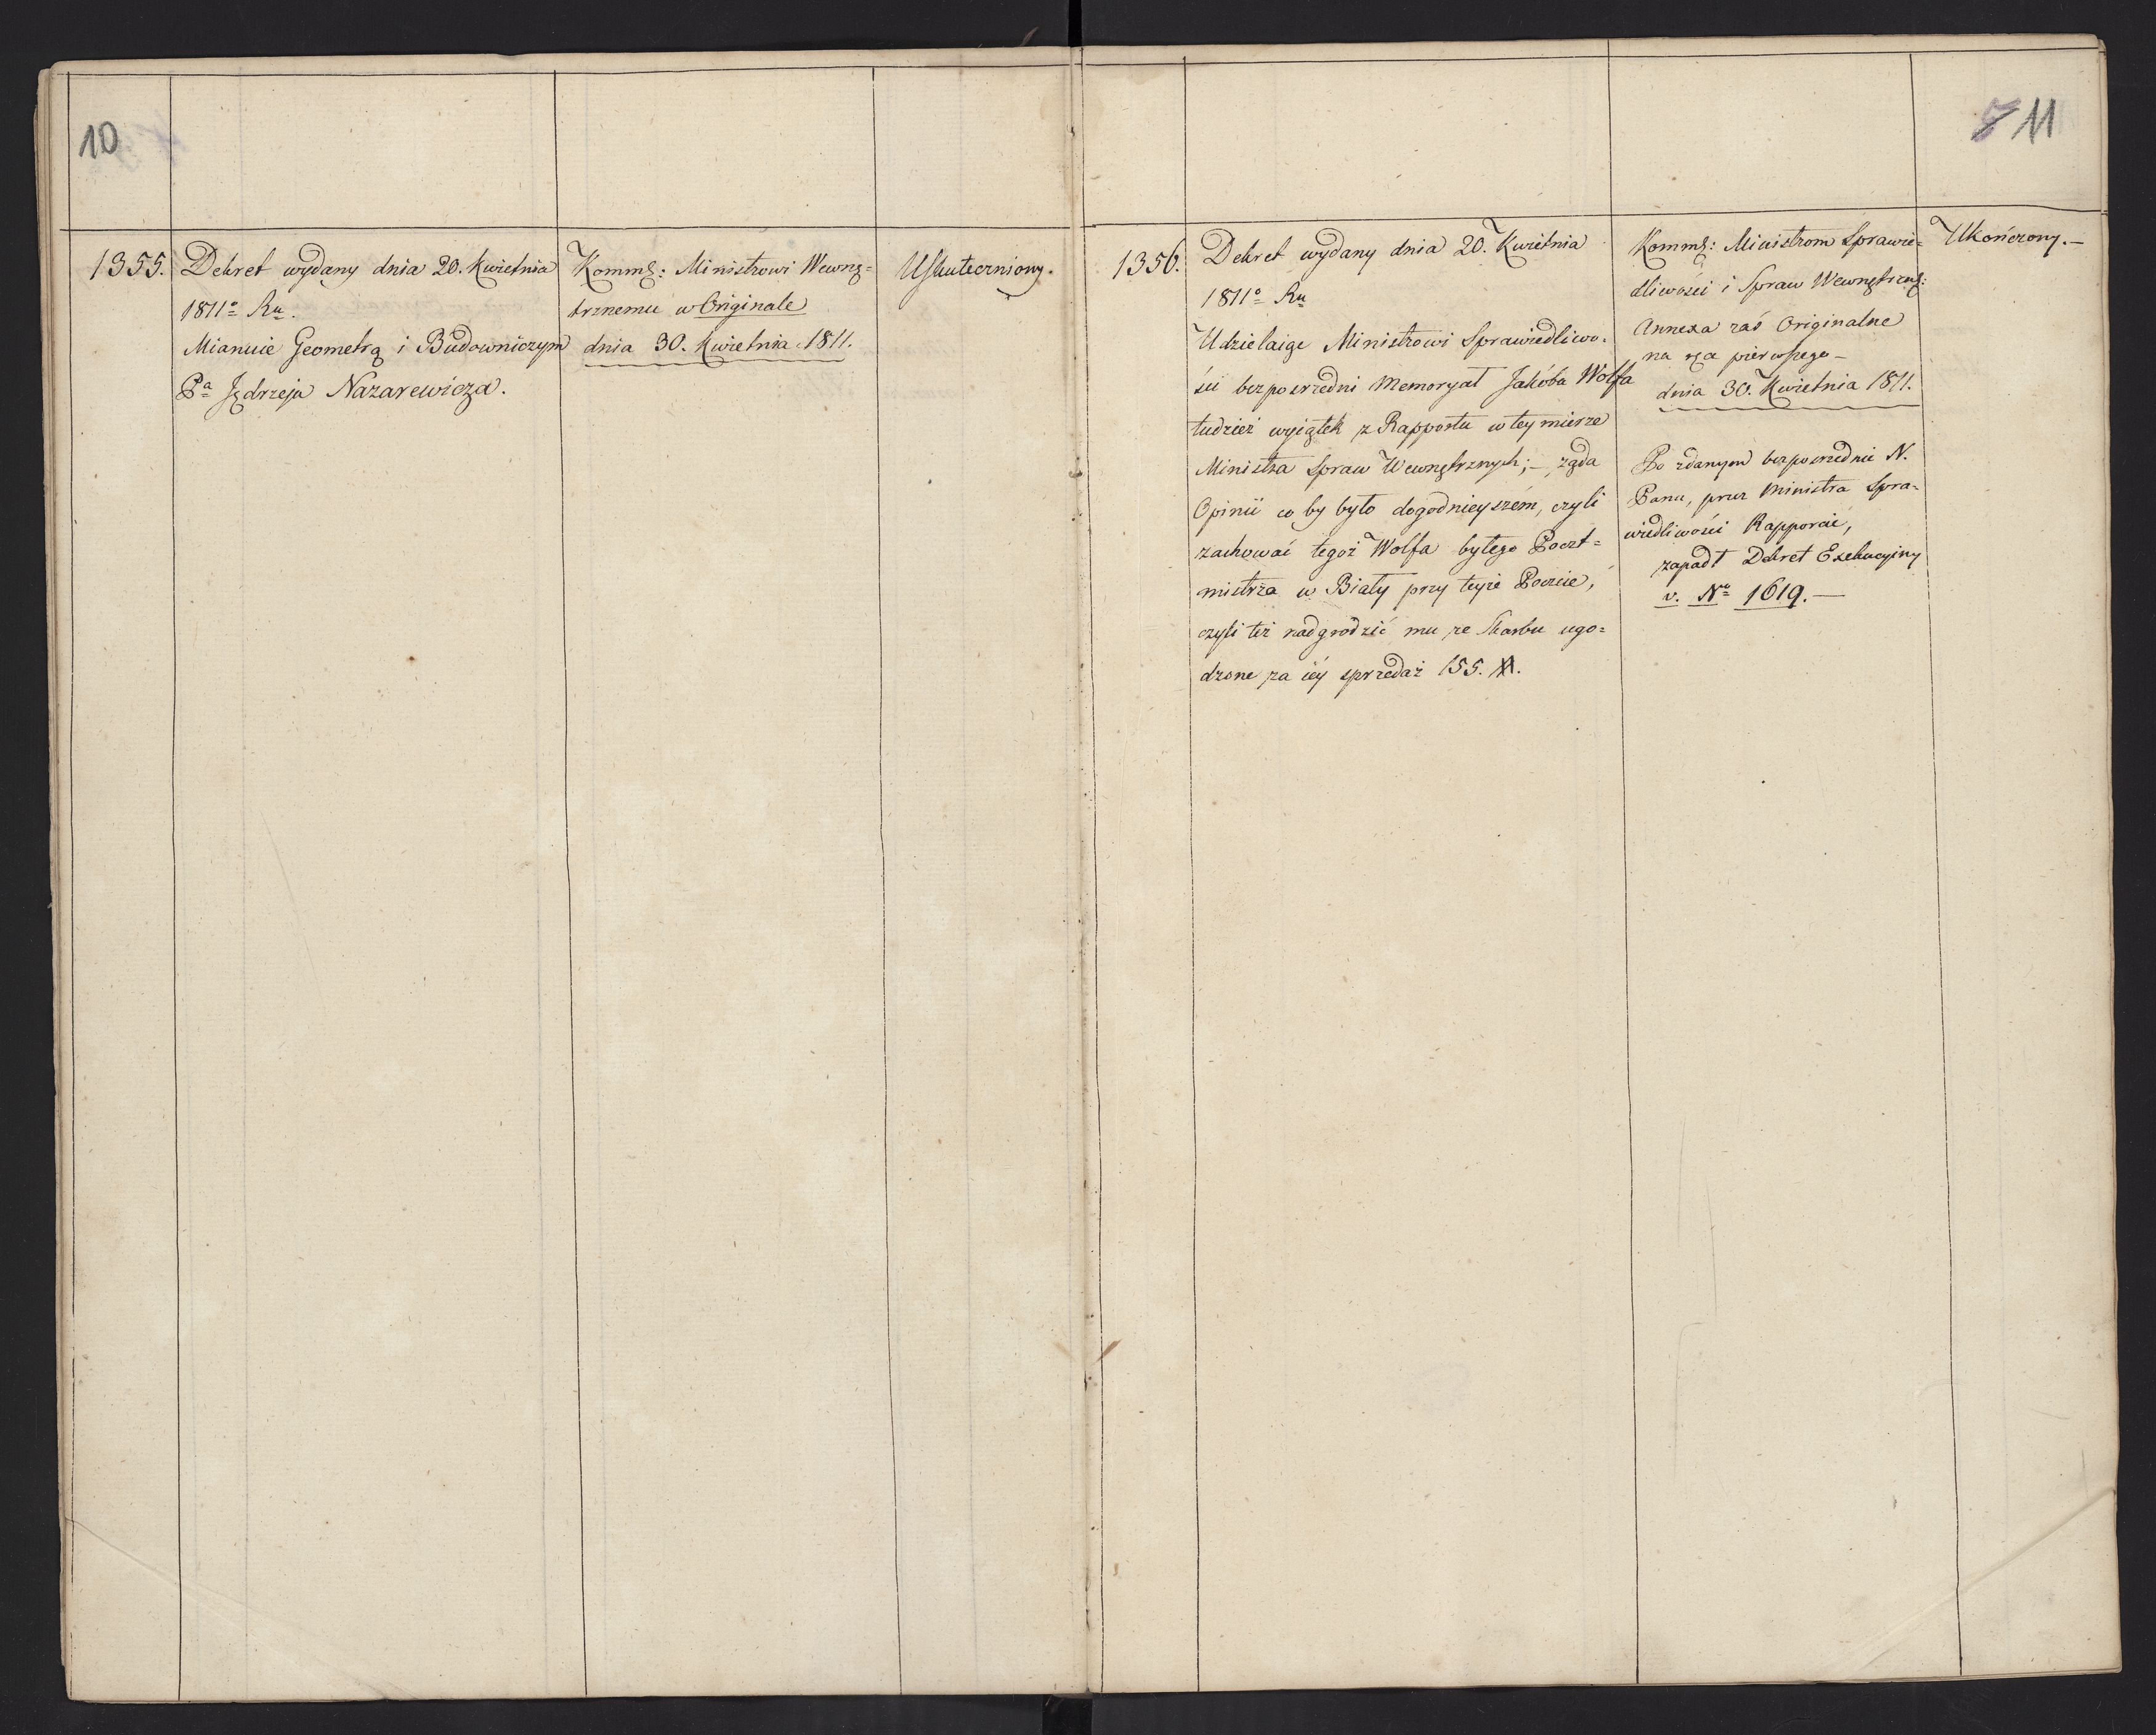 10
1355.
Dekret wydany dnia 20. Kwietnia
1811º Ru.
Mianuie Geometrą i Budowniczym
Pª Jędrzeja Nazarewicza.
Kommę: Ministrowi Wewnę=
trznemu w Originale
dnia 30. Kwietnia 1811.
Uskuteczniony.
11
1356.
Dekret wydany dnia 20. Kwietnia
1811º Ru
Udzielaiąc Ministrowi Sprawiedliwo=
ści bezpośredni Memoryał Jakóba Wolfa
tudzież wyiątek z Rapportu w tey mierze
Ministra Spraw Wewnętrznych; – żąda
Opinii co by było dogodnieyszém, czyli
zachować tegoż Wolfa byłego Poczt=
mistrza w Biały przy teyże Poczcie,
czyli też nadgrodzić mu ze Skarbu ugo=
dzone za iéy sprzedaż 155. #.
Kommę: Ministrom Sprawie=
dliwości i Spraw Wewnętrzny:
Annexa zaś Originalne
na ręce pierwszego –
dnia 30. Kwietnia 1811.
Po zdanym bezpośrednie N.
Panu, przez Ministra Spra=
wiedliwości Rapporcie,
zapadł Dekret Exekucyiny
v. Nº 1619. –
Ukończony. –